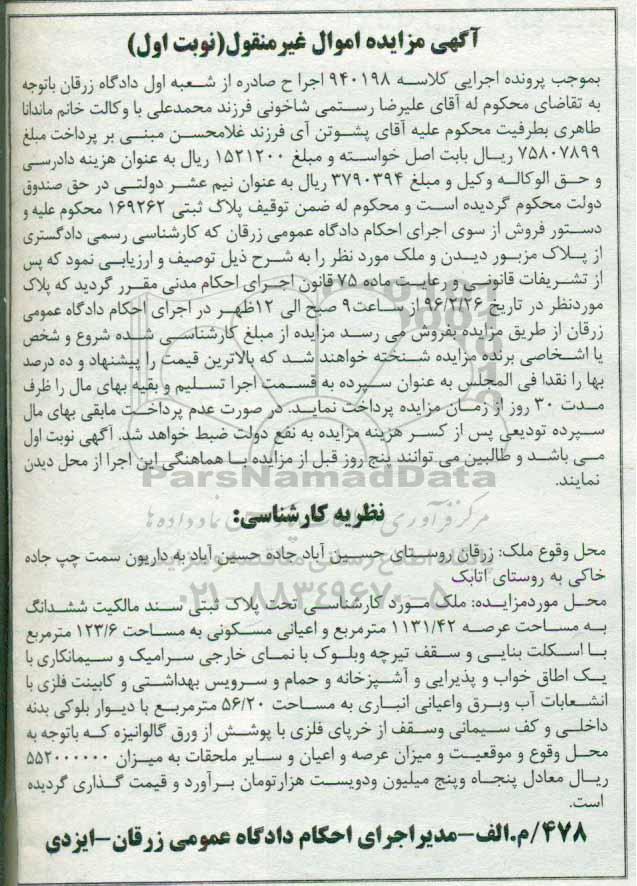 آگهی مزایده اموال غیرمنقول(نوبت اول)
بموجب پرونده اجرایی کلاسه ۹۴۰۱۹۸ اجرا ح صادره از شعبه اول دادگاه زرقان باتوجه
به تقاضای محکوم له آقای علیرضا رستمی شاخونی فرزند محمدعلی با وکالت خانم ماندانا
طاهری بطرفیت محکوم علیه آقای پشوتن آی فرزند غلامحسن مبنی بر پرداخت مبلغ
۷۵۸۰۷۸۹۹ ریال بابت اصل خواسته و مبلغ ۱۵۲۱۲۰۰ ریال به عنوان هزینه دادرسی
و حق الوکاله وکیل و مبلغ ۳۷۹۰۳۹۴ ریال به عنوان نیم عشر دولتی در حق صندوق
دولت محکوم گردیده است و محکوم له ضمن توقیف پلاک ثبتی ۱۶۹۲۶۲ محکوم علیه و
دستور فروش از سوی اجرای احکام دادگاه عمومی زرقان که کارشناسی رسمی دادگستری
از پلاک مزبور دیدن و ملک مورد نظر را به شرح ذیل توصیف و ارزیابی نمود که پس
از تشریفات قانونی و رعایت ماده ۷۵ قانون اجرای احکام مدنی مقرر گردید که پلاک
موردنظر در تاریخ ۹۶/۲/۲۶ از ساعت۹ صبح الی ۱۲ظهر در اجرای احکام دادگاه عمومی
زرقان از طریق مزایده بفروش می رسد مزایده از مبلغ کارشناسی شده شروع و شخص
یا اشخاصی برنده مزایده شنخته خواهند شد که بالاترین قیمت را پیشنهاد و ده درصد
بها را نقدا فی المجلس به عنوان سپرده به قسمت اجرا تسلیم و بقیه بهای مال را ظرف
مدت ۳۰ روز از زمان مزایده پرداخت نماید. در صورت عدم پرداخت مابقی بهای مال
سپرده تودیعی پس از کسر هزینه مزایده به نفع دولت ضبط خواهد شد. آگهی نوبت اول
می باشد و طالبین می توانند پنج روز قبل از مزایده با هماهنگی این اجرا از محل دیدن
نمایند.
ParsNamadData
نظریه کارشناسی:
محل وقوع ملک: زرقان روستای حسین آباد جاده حسین آباد به داریون سمت چپ جاده
خاکی به روستای اتابک
۰۲۱-۸۸۳۴۹۶۷۰-۵
محل موردمزایده: ملک مورد کارشناسی تحت پلاک ثبتی سند مالکیت ششدانگ
به مساحت عرصه ۱۱۳۱/۴۲ مترمربع و اعیانی مسکونی به مساحت ۱۲۳/۶ مترمربع
با اسکلت بنایی و سقف تیرچه وبلوک با نمای خارجی سرامیک و سیمانکاری با
یک اطاق خواب و پذیرایی و آشپزخانه و حمام و سرویس بهداشتی و کابینت فلزی با
انشعابات آب وبرق واعیانی انباری به مساحت ۵۶/۲۰ مترمربع با دیوار بلوکی بدنه
داخلی و کف سیمانی وسقف از خرپای فلزی با پوشش از ورق گالوانیزه که باتوجه به
محل وقوع و موقعیت و میزان عرصه و اعیان و سایر ملحقات به میزان ۵۵۲۰۰۰۰۰۰
ریال معادل پنجاه وپنج میلیون ودویست هزارتومان برآورد و قیمت گذاری گردیده
است.
۴۷۸/م.الف-مدیراجرای احکام دادگاه عمومی زرقان-ایزدی